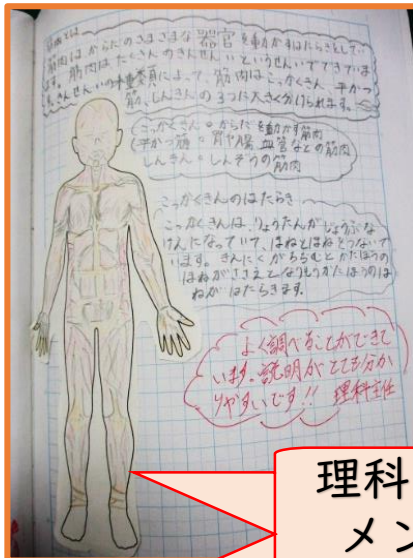 筋肉とは
筋肉はからだのさまざまな器官を動かすはたらきをしてい
ます。筋肉はたくさんのきんせんいというせんいでできていま
す。きんせんいの種類によって、筋肉はこっかくきん、平かつ
筋、しんきんの3つに大きく分けられます。
こっかくきん・からだを動かす筋肉
平かつ筋・胃や腸、血管などの筋肉
しんきん・しんぞうの筋肉
こっかくきんのはたらき
こっかくきんは、りょうたんがじょうぶな
けんになっていて、ほねとほねをつないで
います。きんにくがちぢむとかたほうの
ほねがささえとなりもうかたほうのほ
ねがはたらきます。
よく調べることができて
います。説明がとても分か
りやすいです!! 理科主任
理科
メン